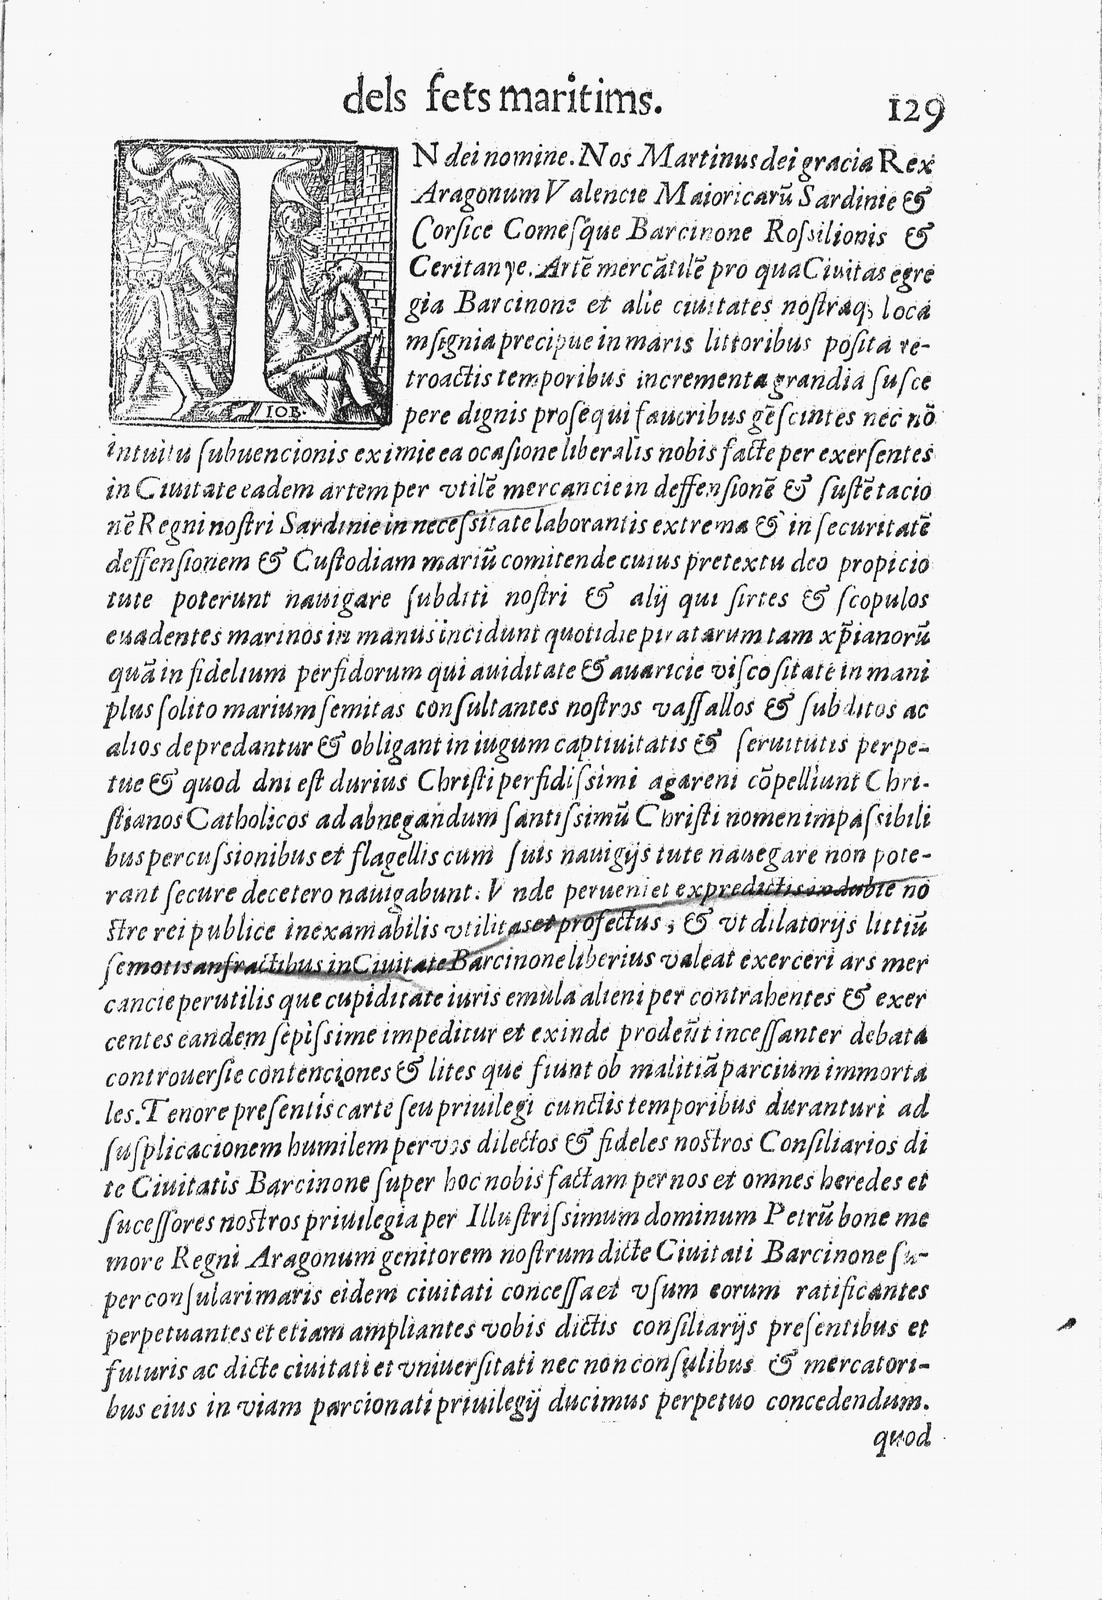 dels fets maritims.
129
IN dei nomine. Nos Martinus dei gracia Rex
Aragonum Valencie Maioricarũ Sardinie &
Corsice Comesque Barcinone Rossilionis &
Ceritanye. Artẽ mercãtilẽ pro qua Ciuitas egre
gia Barcinone et alie ciuitates nostraq; loca
insignia precipue in maris littoribus posita re-
troactis temporibus incrementa grandia susce
pere dignis prosequi fauoribus gẽscintes nec nõ
IOB.
intuitu subuencionis eximie ea ocasione liberalis nobis facte per exersentes
in Ciuitate eadem artem per vtilẽ mercancie in deffensionẽ & sustẽtacio
nẽ Regni nostri Sardinie in necessitate laborantis extrema & in securitatẽ
deffensionem & Custodiam mariũ comitende cuius pretextu deo propicio
tute poterunt nauigare subditi nostri & alij qui sirtes & scopulos
euadentes marinos in manus incidunt quotidie piratarum tam xp̃ianorũ
quã in fidelium perfidorum qui auiditate & auaricie viscositate in mani
plus solito marium semitas consultantes nostros vassallos & subditos ac
alios depredantur & obligant in iugum captiuitatis & seruitutis perpe-
tue & quod dni est durius Christi perfidissimi agareni cõpelliunt Chri-
stianos Catholicos ad abnegandum santissimũ Christi nomen impassibili
bus percussionibus et flagellis cum suis nauigijs tute nauegare non pote-
rant secure decetero nauigabunt. Vnde perueniet ex predictis indubie no
stre rei publice inexamabilis vtilitas et profectus, & vt dilatorijs littiũ
semotis anfractibus in Ciuitate Barcinone liberius valeat exerceri ars mer
cancie perutilis que cupiditate iuris emula alieni per contrahentes & exer
centes eandem sepissime impeditur et exinde prodeũt incessanter debata
controuersie contenciones & lites que fiunt ob malitiã parcium immorta
les. Tenore presentis carte seu priuilegi cunctis temporibus duranturi ad
susplicacionem humilem per vos dilectos & fideles nostros Consiliarios di
te Ciuitatis Barcinone super hoc nobis factam per nos et omnes heredes et
sucessores nostros priuilegia per Illustrissimum dominum Petrũ bone me
more Regni Aragonum genitorem nostrum dicte Ciuitati Barcinone su-
per consulari maris eidem ciuitati concessa et vsum eorum ratificantes
perpetuantes et etiam ampliantes vobis dictis consiliarijs presentibus et
futuris ac dicte ciuitati et vniuersitati nec non consulibus & mercatori-
bus eius in viam parcionati priuilegij ducimus perpetuo concedendum.
quod